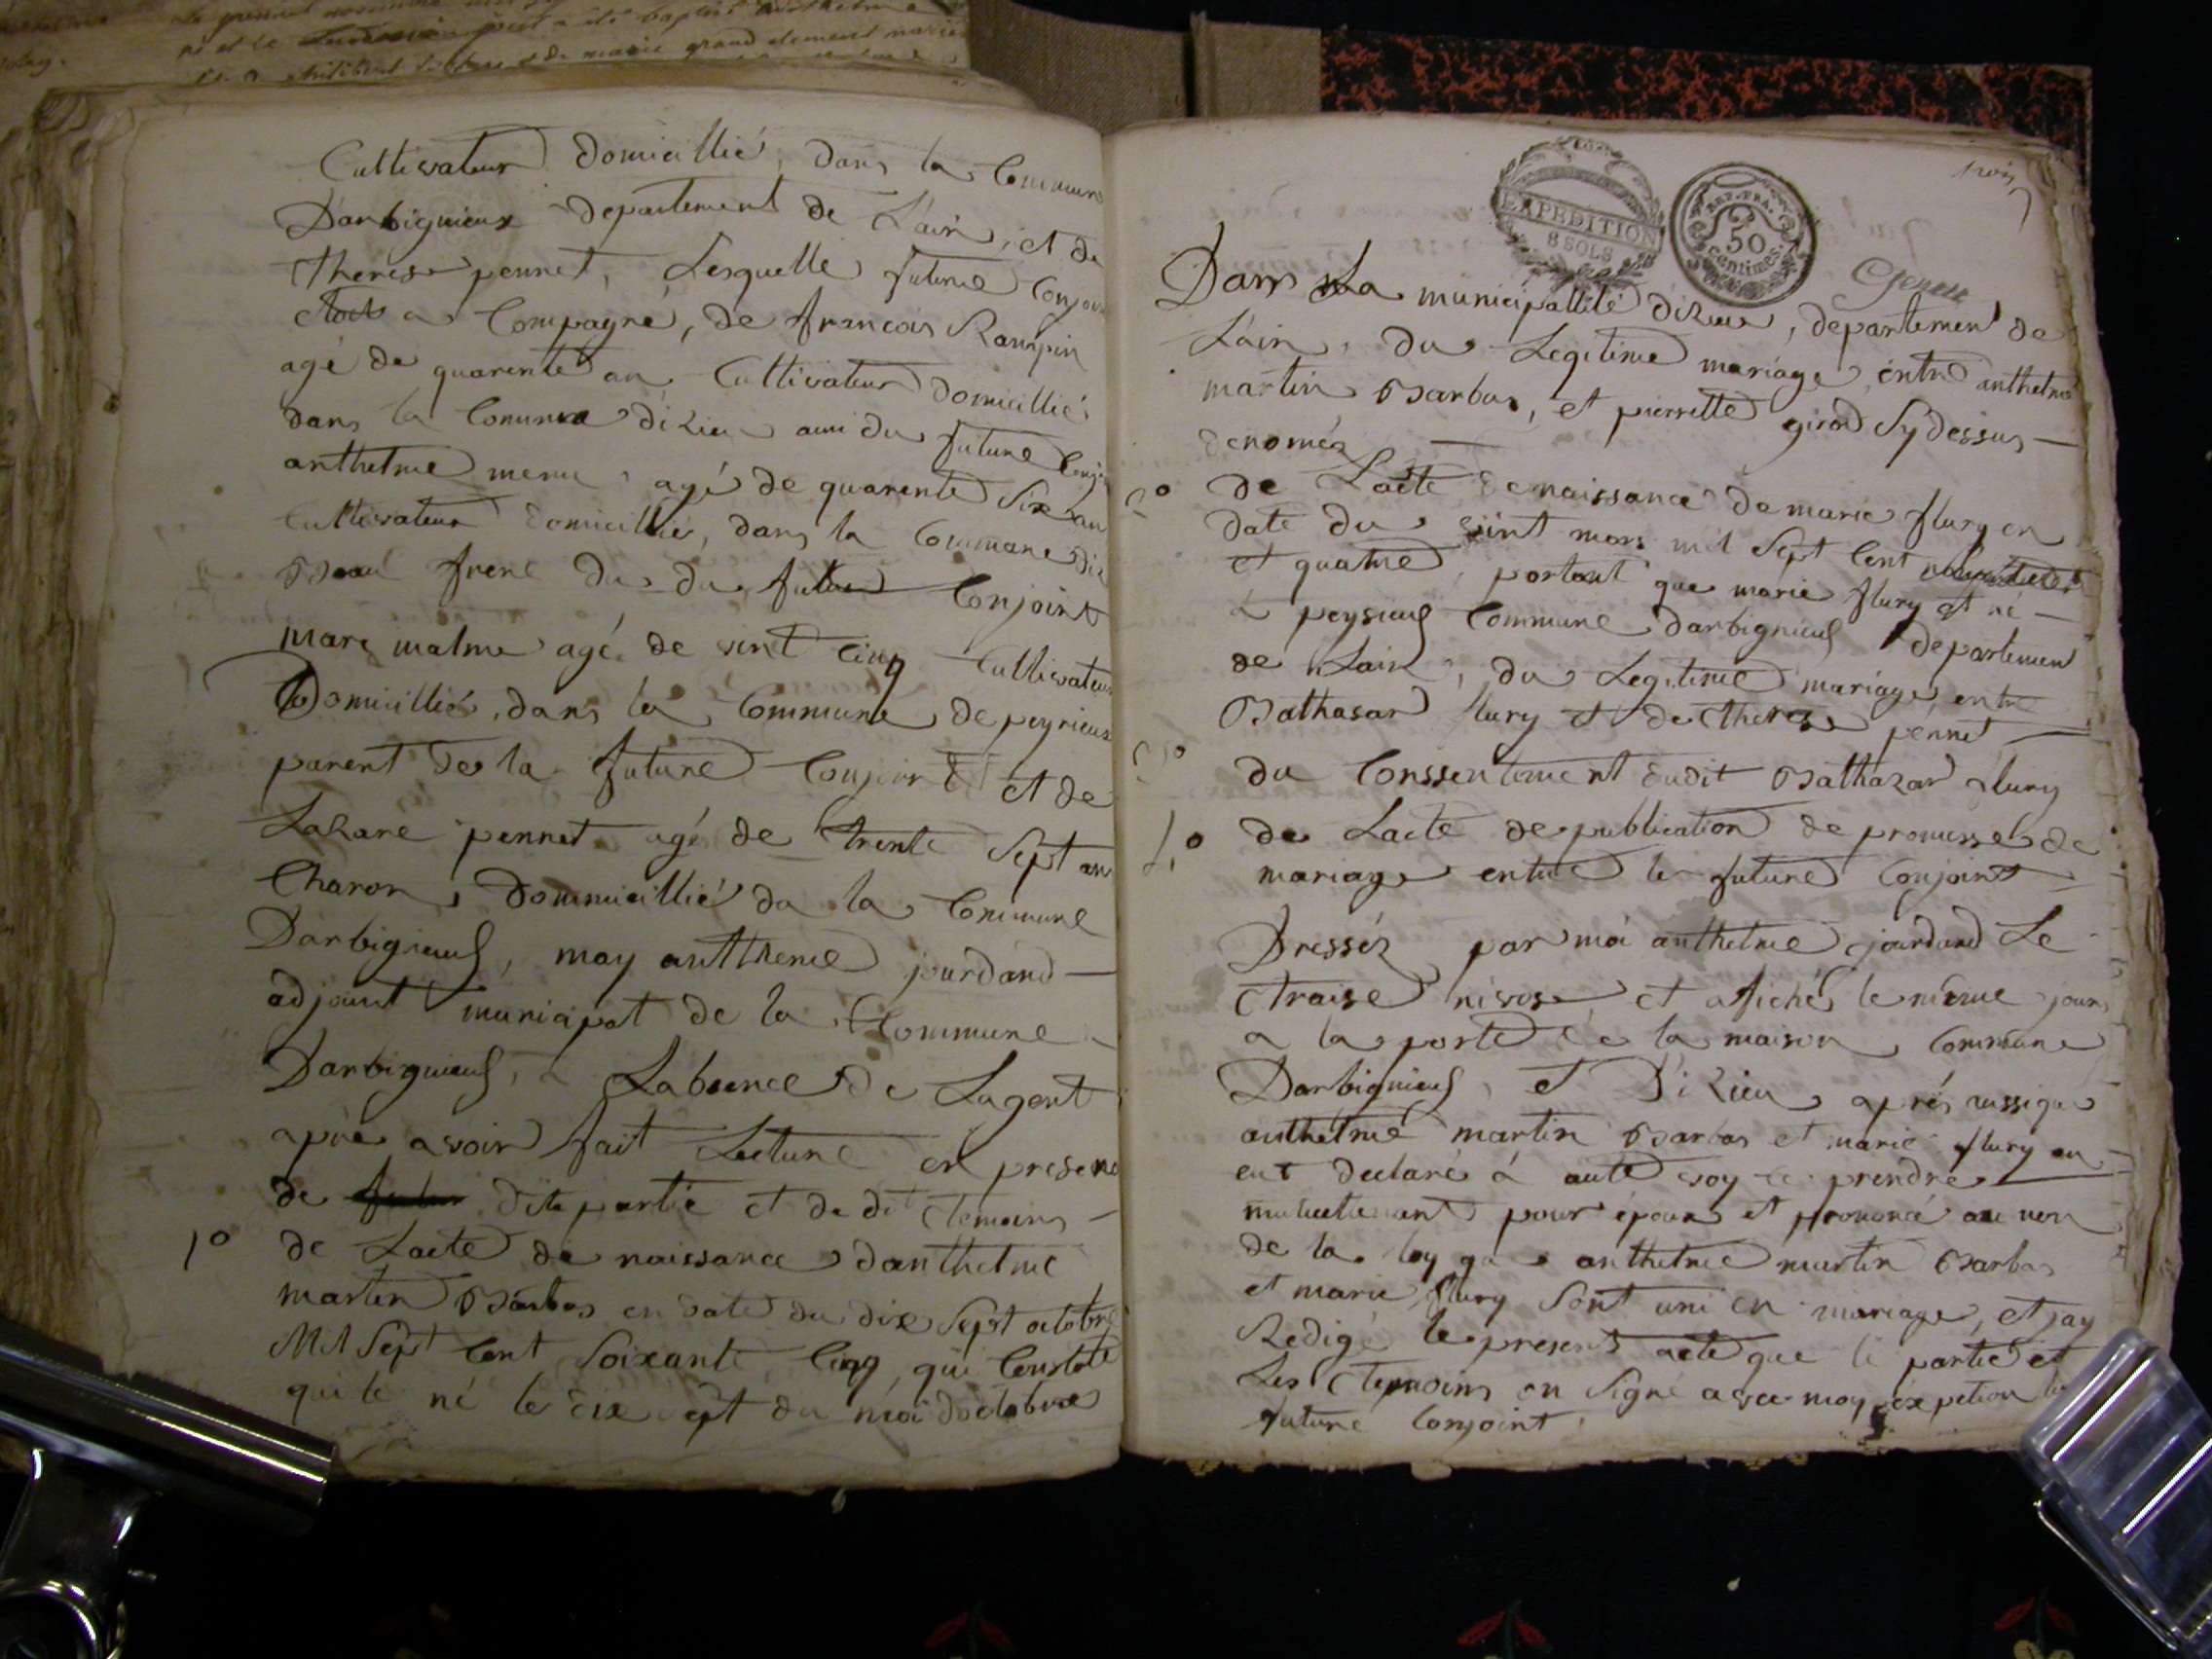 Cultivateur Domicillié, dans la Commune
Darbignieux departement de L'ain, et de
Therese pennet, Lesquelle future Conjoin
etoit a Compagné, de francois Rampin
agé de quarente an Cultivateur domicillié
dans la Comune dizieu ami du future Conj
anthelme menu, agé de quarente Six an
Cultivateur Domicillié, dans la Commune diz
Beau frere du du futur Conjoint
marc malme agé de vint Cinq Cultivateur
Domicillié, dans la Commune de peyrieux
parent de la future Conjoint et de
Lazare pennet agé de trente Sept an
Charon, Dommicillié da la Commune
Darbignieus, moy anthleme jourdand
adjoint municipat de la Commune
Darbignieus, a Labsence de Lagent
aprè avoir fait Lecture en presence
de dite partie et de dit temoins
1º de Lacte de naissance danthelme
martin Barbas en date du dix Sept octobre
Mil Sept Cent Soixante Cinq, qui Constate
qui le né le dix sept du moi doctobre
trois
EXPEDITION
8 SOLS
50
centimes
Dans La municipallité dizieu, departement de
L'ain, du Legitime mariage, entre anthelme
martin Barbas, et pierrette girod Sy dessus
denomés
2º de Lacte de naissance de marie flury en
date du vint mars mil Sept Cent
et quatre, portant que marie flury et né
à peysieus Commune darbignieus departement
de Lain, du Legitime mariage, entre
Balthasar flury et de therese pennet
3º du Conssentement dudit Balthazar flury
4º de Lacte de publication de promesse de
mariage entre le future Conjoint
Dressés par moi anthelme jourdand Le
traise nivose et afiché le même jour
a la porte de la maison Commune
Darbignieus, et Dizieu aprés aussi que
anthelme martin Barbas et marie flury on
eut declaré à aute voy se prendre
mutuellement pour époux et prononcé au non
de la loy que anthelme martin Barbas
et marie flury Sont uni en mariage, et jay
Redigé le present acte que le partie et
Les temoins on Signé avec moy expetion le
future Conjoint.